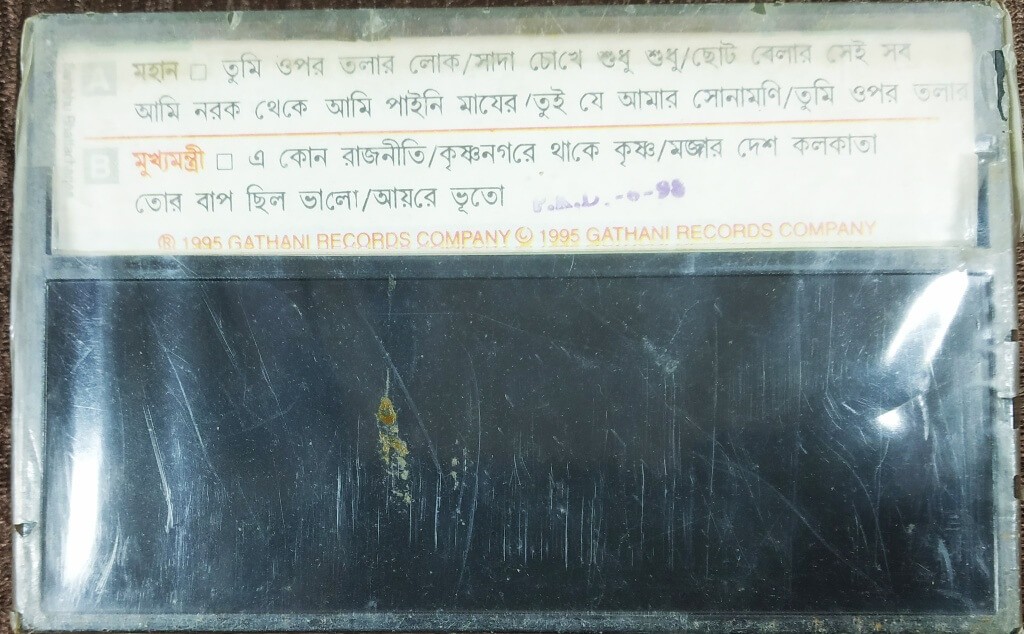 A মহান □ তুমি ওপর তলার লোক/সাদা চোখে শুধু শুধু/ছোট বেলার সেই সব
আমি নরক থেকে আমি পাইনি মাযের/তুই যে আমার সোনামণি/তুমি ওপর তলার
B মুখ্যমন্ত্রী □ এ কোন রাজনীতি/কৃষ্ণনগরে থাকে কৃষ্ণ/মজার দেশ কলকাতা
তোর বাপ ছিল ভালো/আয়রে ভূতো
℗ 1995 GATHANI RECORDS COMPANY © 1995 GATHANI RECORDS COMPANY